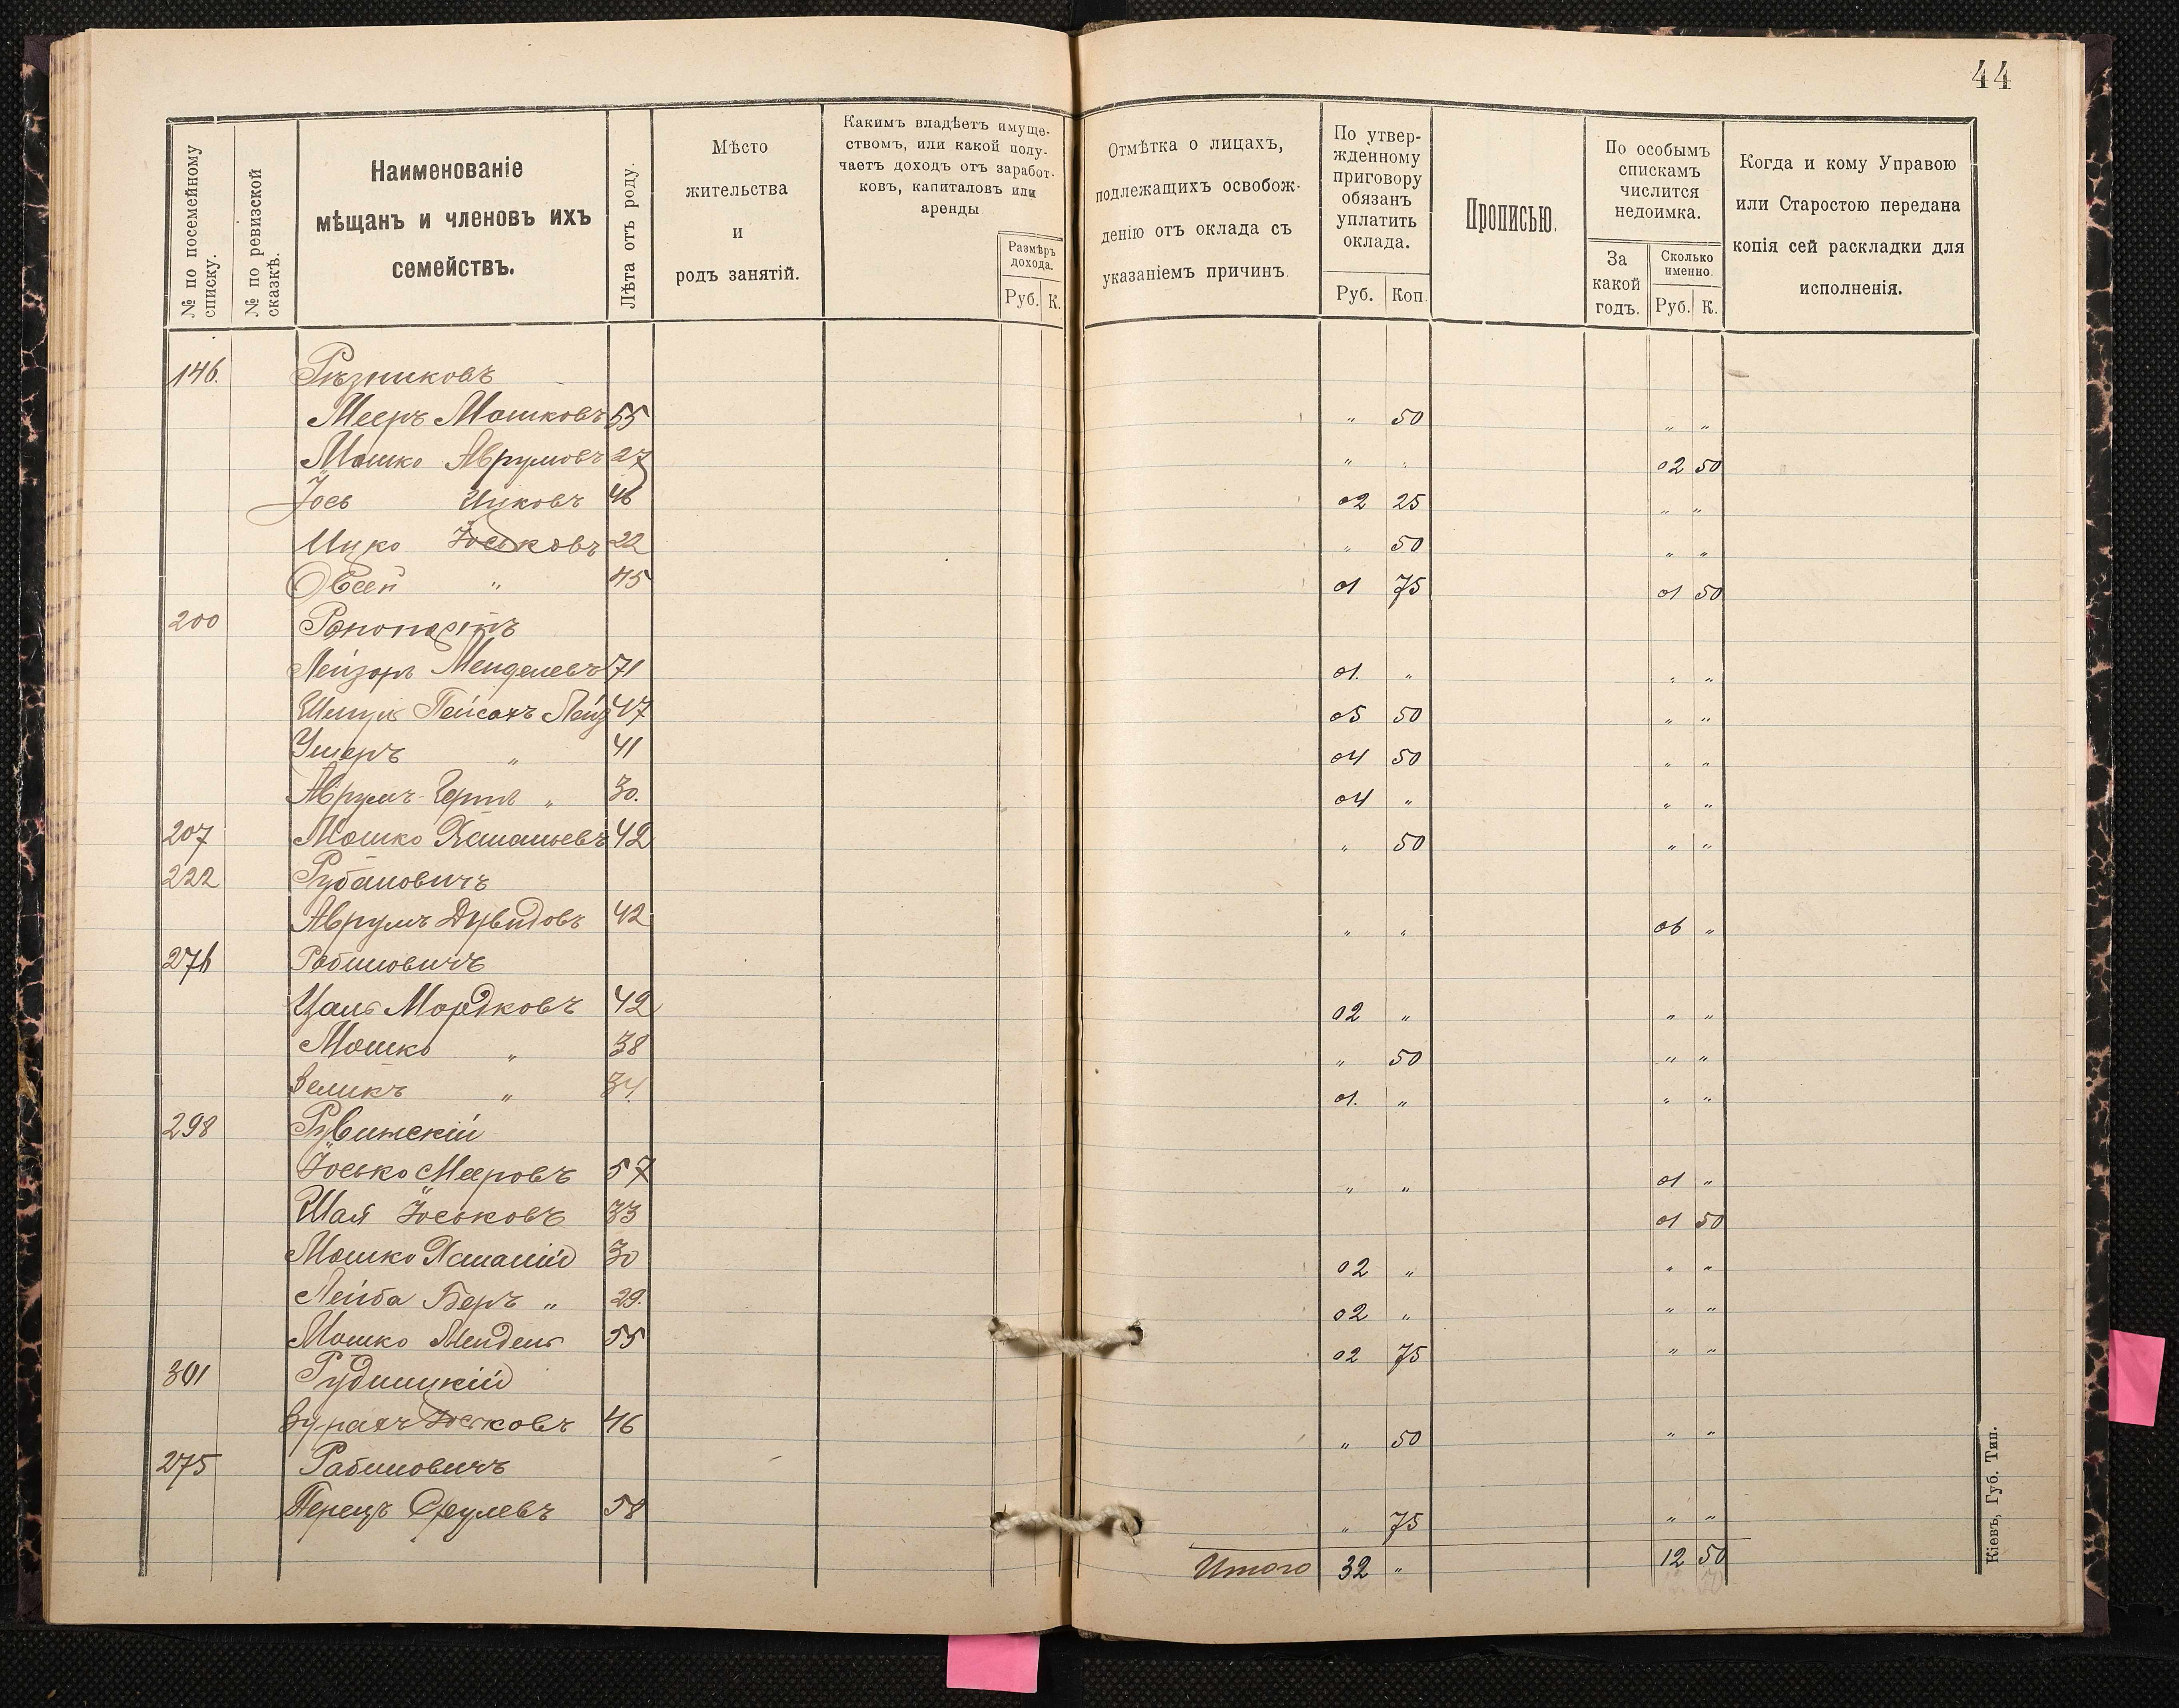 44
№ по посемейному списку.
№ по ревизской сказкѣ.
Наименованіе
мѣщанъ и членовъ ихъ
семействъ.
Лѣта отъ роду.
Мѣсто
жительства
и
родъ занятій.
Какимъ владѣетъ имуще-
ствомъ, или какой полу-
чаетъ доходъ отъ заработ-
ковъ, капиталовъ или
аренды
Размѣръ
дохода.
Руб. К.
Отмѣтка о лицахъ,
подлежащихъ освобож-
денію отъ оклада съ
указаніемъ причинъ.
По утвер-
жденному
приговору
обязанъ
уплатить
оклада.
Руб. Коп.
Прописью.
По особымъ
спискамъ
числится
недоимка.
За
какой
годъ.
Сколько
именно.
Руб. К.
Когда и кому Управою
или Старостою передана
копія сей раскладки для
исполненія.
146. Рѣзниковъ
Мееръ Мошковъ 55 " 50 " "
Мошко Аврумовъ 27 " " 02 50
Іось Ицковъ 46 02 25 " "
Ицко Іоськовъ 22 " 50 " "
Овсей " 45 01 75 01 50
200 Рапопортъ
Лейзоръ Менделевъ 71 01. " " "
Пейсахъ Лейз 47 05 50 " "
Ушеръ " 41 04 50 " "
Аврумъ-Герть " 30. 04 " " "
207 Мошко Хананьевъ 42 " 50 " "
222 Рубановичъ
Аврумъ Дувидовъ 42 " " 06 "
276 Рабиновичъ
Цаль Мордковъ 42 02 " " "
Мошко " 38 " 50 " "
Зеликъ " 34. 01. " " "
298 Рувинскій
Іосько Мееровъ 57 " " 01 "
Шая Іоськовъ 33 01 50
Мошко Хананій 30 02 " " "
Лейба Беръ " 29. 02 " " "
Мошко Мендель 55 02 75 " "
301 Рудницкій
Зурахъ Іоськовъ 46 " 50 " "
275 Рабиновичъ
Перецъ Срулевъ 58 " 75 " "
Итого 32 " 12 50
Кіевъ, Губ. Тип.